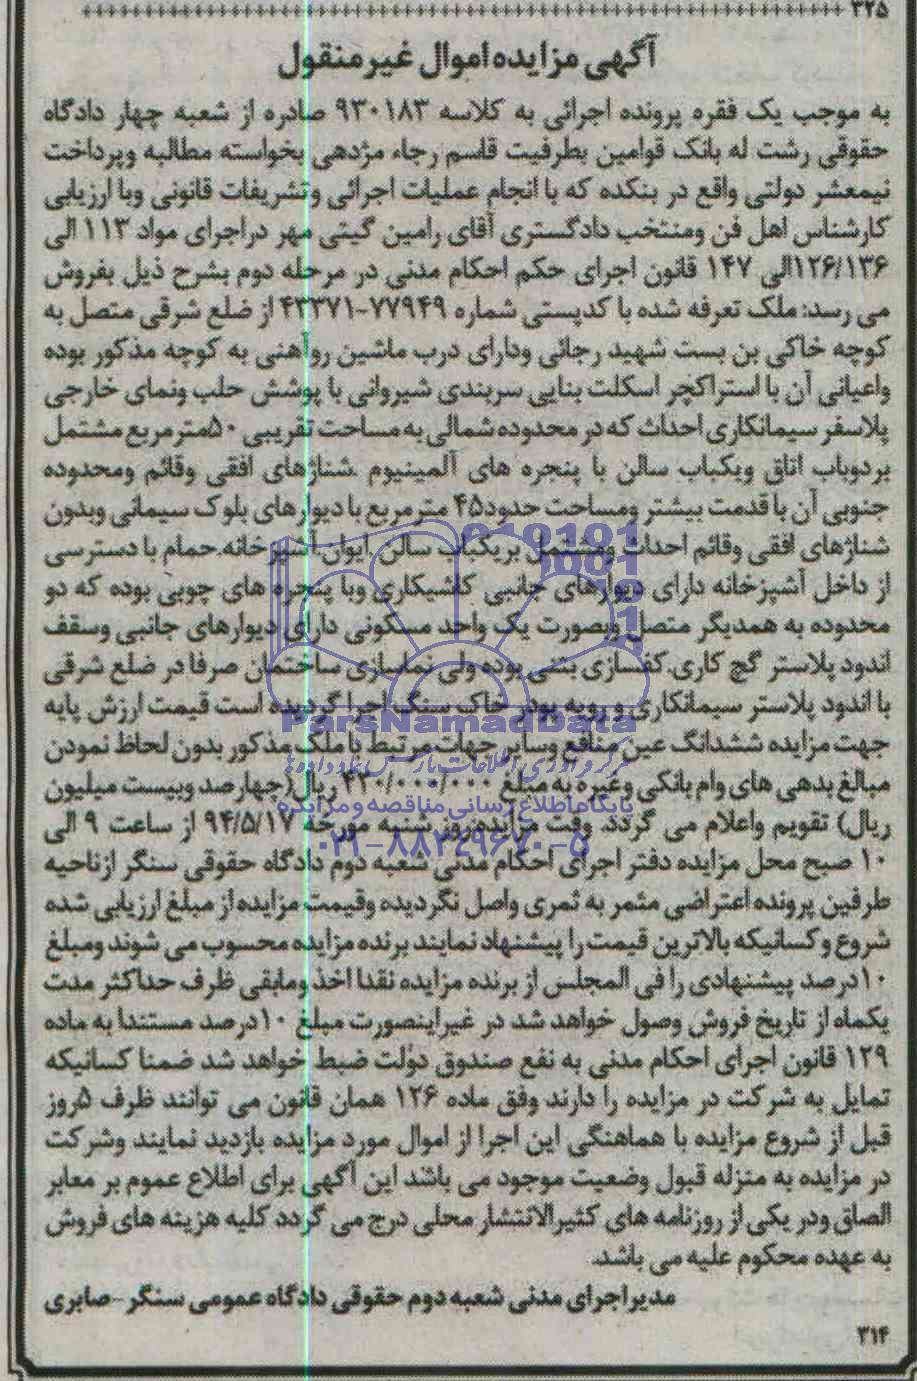 ۳۲۵
آگهی مزایده اموال غیرمنقول
به موجب یک فقره پرونده اجرائی به کلاسه ۹۳۰۱۸۳ صادره از شعبه چهار دادگاه
حقوقی رشت له بانک قوامین بطرفیت قاسم رجاء مژدهی بخواسته مطالبه وپرداخت
نیمعشر دولتی واقع در بنکده که با انجام عملیات اجرائی وتشریفات قانونی وبا ارزیابی
کارشناس اهل فن ومنتخب دادگستری آقای رامین گیتی مهر دراجرای مواد ۱۱۳ الی
۱۲۶/۱۳۶الی ۱۴۷ قانون اجرای حکم احکام مدنی در مرحله دوم بشرح ذیل بفروش
می رسد: ملک تعرفه شده با کدپستی شماره ۷۷۹۴۹-۴۳۳۷۱ از ضلع شرقی متصل به
کوچه خاکی بن بست شهید رجائی ودارای درب ماشین روآهنی به کوچه مذکور بوده
واعیانی آن با استراکچر اسکلت بنایی سربندی شیروانی با پوشش حلب ونمای خارجی
پلاسفر سیمانکاری احداث که در محدوده شمالی به مساحت تقریبی ۵۰مترمربع مشتمل
بردوباب اتاق ویکباب سالن با پنجره های آلمینیوم .شناژهای افقی وقائم ومحدوده
جنوبی آن باقدمت بیشتر ومساحت حدود۴۵ مترمربع با دیوارهای بلوک سیمانی وبدون
شناژهای افقی وقائم احداث ومشتمل بریکباب سالن .ایوان.آشپزخانه.حمام با دسترسی
از داخل آشپزخانه دارای دیوارهای جانبی کاشیکاری وبا پنجره های چوبی بوده که دو
محدوده به همدیگر متصل وبصورت یک واحد مسکونی دارای دیوارهای جانبی وسقف
اندود پلاستر گچ کاری.کفسازی بتنی بوده ولی نماسازی ساختمان صرفا در ضلع شرقی
با اندود پلاستر سیمانکاری و رویه پودر خاک سنگ اجرا گردیده است قیمت ارزش پایه
ParsNamadData
جهت مزایده ششدانگ عین منافع وسایر جهات مرتبط با ملک مذکور بدون لحاظ نمودن
مبالغ بدهی های وام بانکی وغیره به مبلغ ۴۲۰/۰۰۰/۰۰۰ ریال(چهارصد وبیست میلیون
پایگاه اطلاع رسانی مناقصه و مزایده
ریال) تقویم واعلام می گردد. وقت مزایده روز شنبه مورخه ۹۴/۵/۱۷ از ساعت ۹ الی
۰۲۱-۸۸۳۴۹۶۷۰-۵
۱۰ صبح محل مزایده دفتر اجرای احکام مدنی شعبه دوم دادگاه حقوقی سنگر ازناحیه
طرفین پرونده اعتراضی مثمر به ثمری واصل نگردیده وقیمت مزایده از مبلغ ارزیابی شده
شروع و کسانیکه بالاترین قیمت را پیشنهاد نمایند برنده مزایده محسوب می شوند ومبلغ
۱۰درصد پیشنهادی را فی المجلس از برنده مزایده نقدا اخذ ومابقی ظرف حداکثر مدت
یکماه از تاریخ فروش وصول خواهد شد در غیراینصورت مبلغ ۱۰درصد مستندا به ماده
۱۲۹ قانون اجرای احکام مدنی به نفع صندوق دولت ضبط خواهد شد ضمنا کسانیکه
تمایل به شرکت در مزایده را دارند وفق ماده ۱۲۶ همان قانون می توانند ظرف ۵روز
قبل از شروع مزایده با هماهنگی این اجرا از اموال مورد مزایده بازدید نمایند وشرکت
در مزایده به منزله قبول وضعیت موجود می باشد این آگهی برای اطلاع عموم بر معابر
الصاق ودر یکی از روزنامه های کثیرالانتشار محلی درج می گردد کلیه هزینه های فروش
به عهده محکوم علیه می باشد.
مدیراجرای مدنی شعبه دوم حقوقی دادگاه عمومی سنگر-صابری
۳۱۴